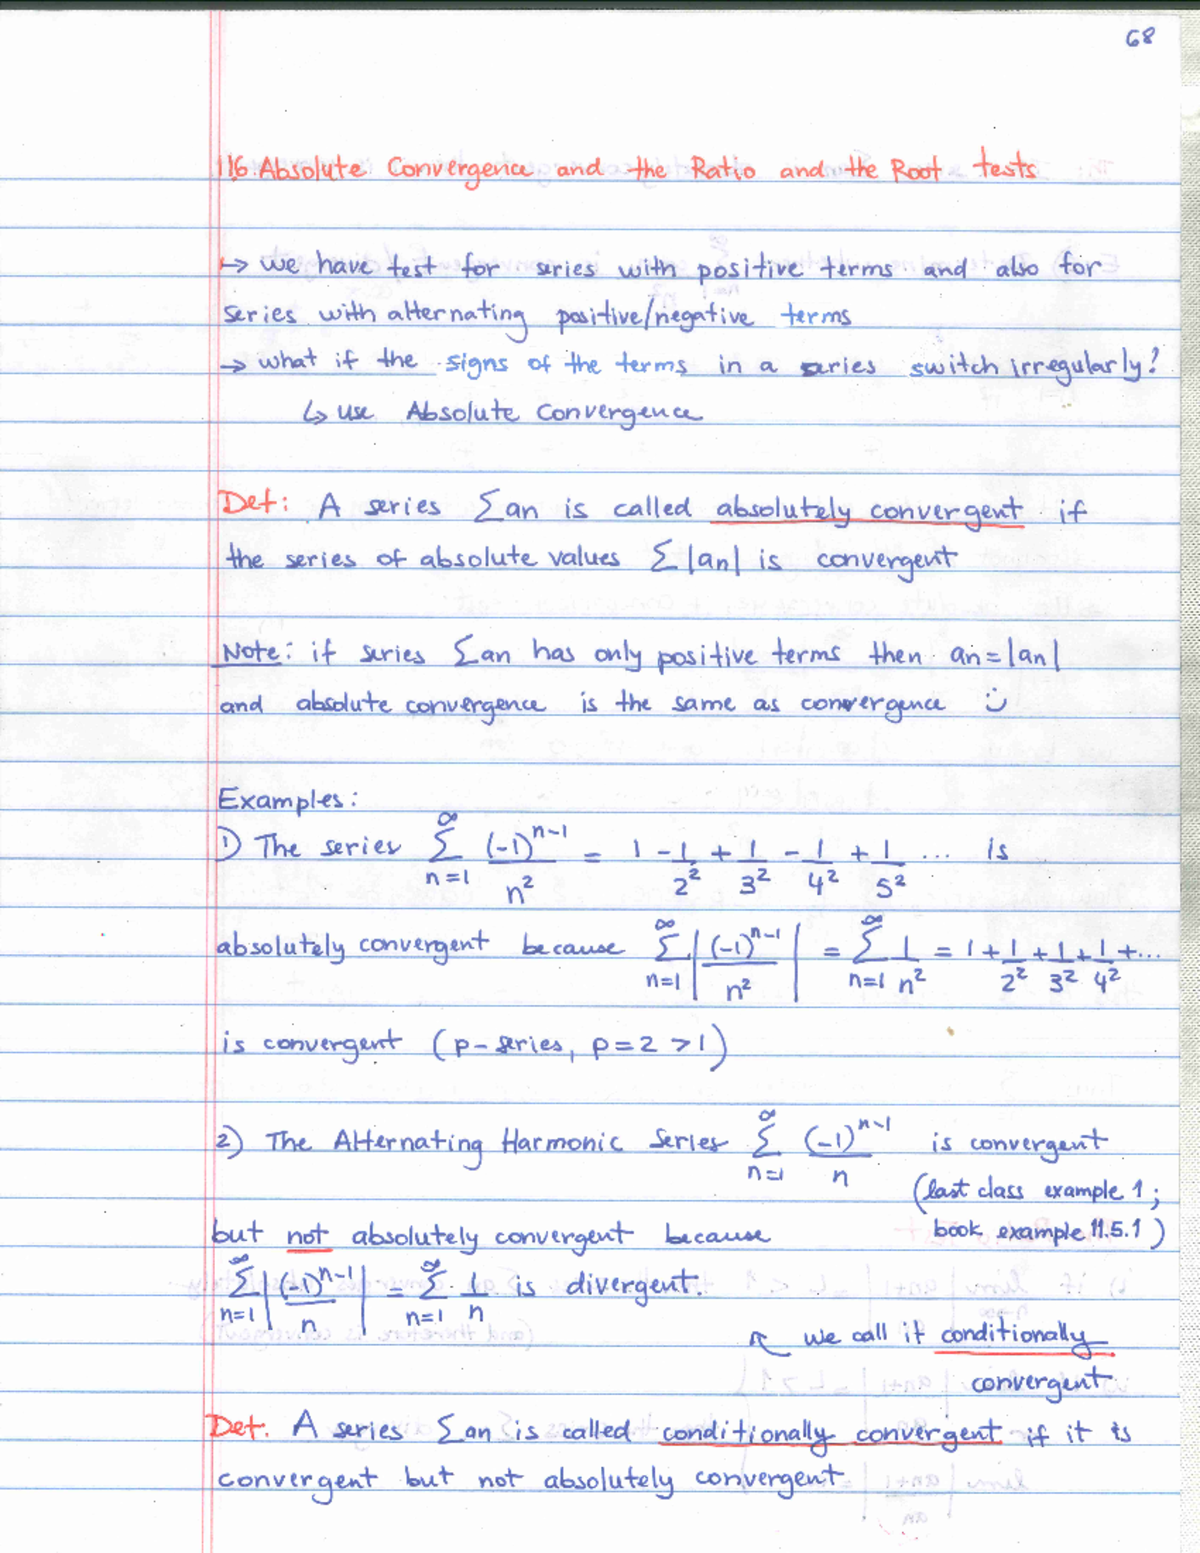 68
11.6. Absolute Convergence and the Ratio and the Root tests
→ we have test for series with positive terms and also for
series with alternating positive/negative terms
→ what if the signs of the terms in a series switch irregularly?
↳ use Absolute Convergence
Def: A series ∑an is called absolutely convergent if
the series of absolute values ∑|an| is convergent
Note: if series ∑an has only positive terms then an=|an|
and absolute convergence is the same as convergence :)
Examples:
1) The series ∑_{n=1}^{∞} (-1)^{n-1}/n² = 1 - 1/2² + 1/3² - 1/4² + 1/5² ... is
absolutely convergent because ∑_{n=1}^{∞} |(-1)^{n-1}/n²| = ∑_{n=1}^{∞} 1/n² = 1 + 1/2² + 1/3² + 1/4² + ...
is convergent (p-series, p=2 >1)
2) The Alternating Harmonic Series ∑_{n=1}^{∞} (-1)^{n-1}/n is convergent
(last class example 1;
but not absolutely convergent because book example 11.5.1)
∑_{n=1}^{∞} |(-1)^{n-1}/n| = ∑_{n=1}^{∞} 1/n is divergent.
↖ we call it conditionally
convergent
Def. A series ∑an is called conditionally convergent if it is
convergent but not absolutely convergent